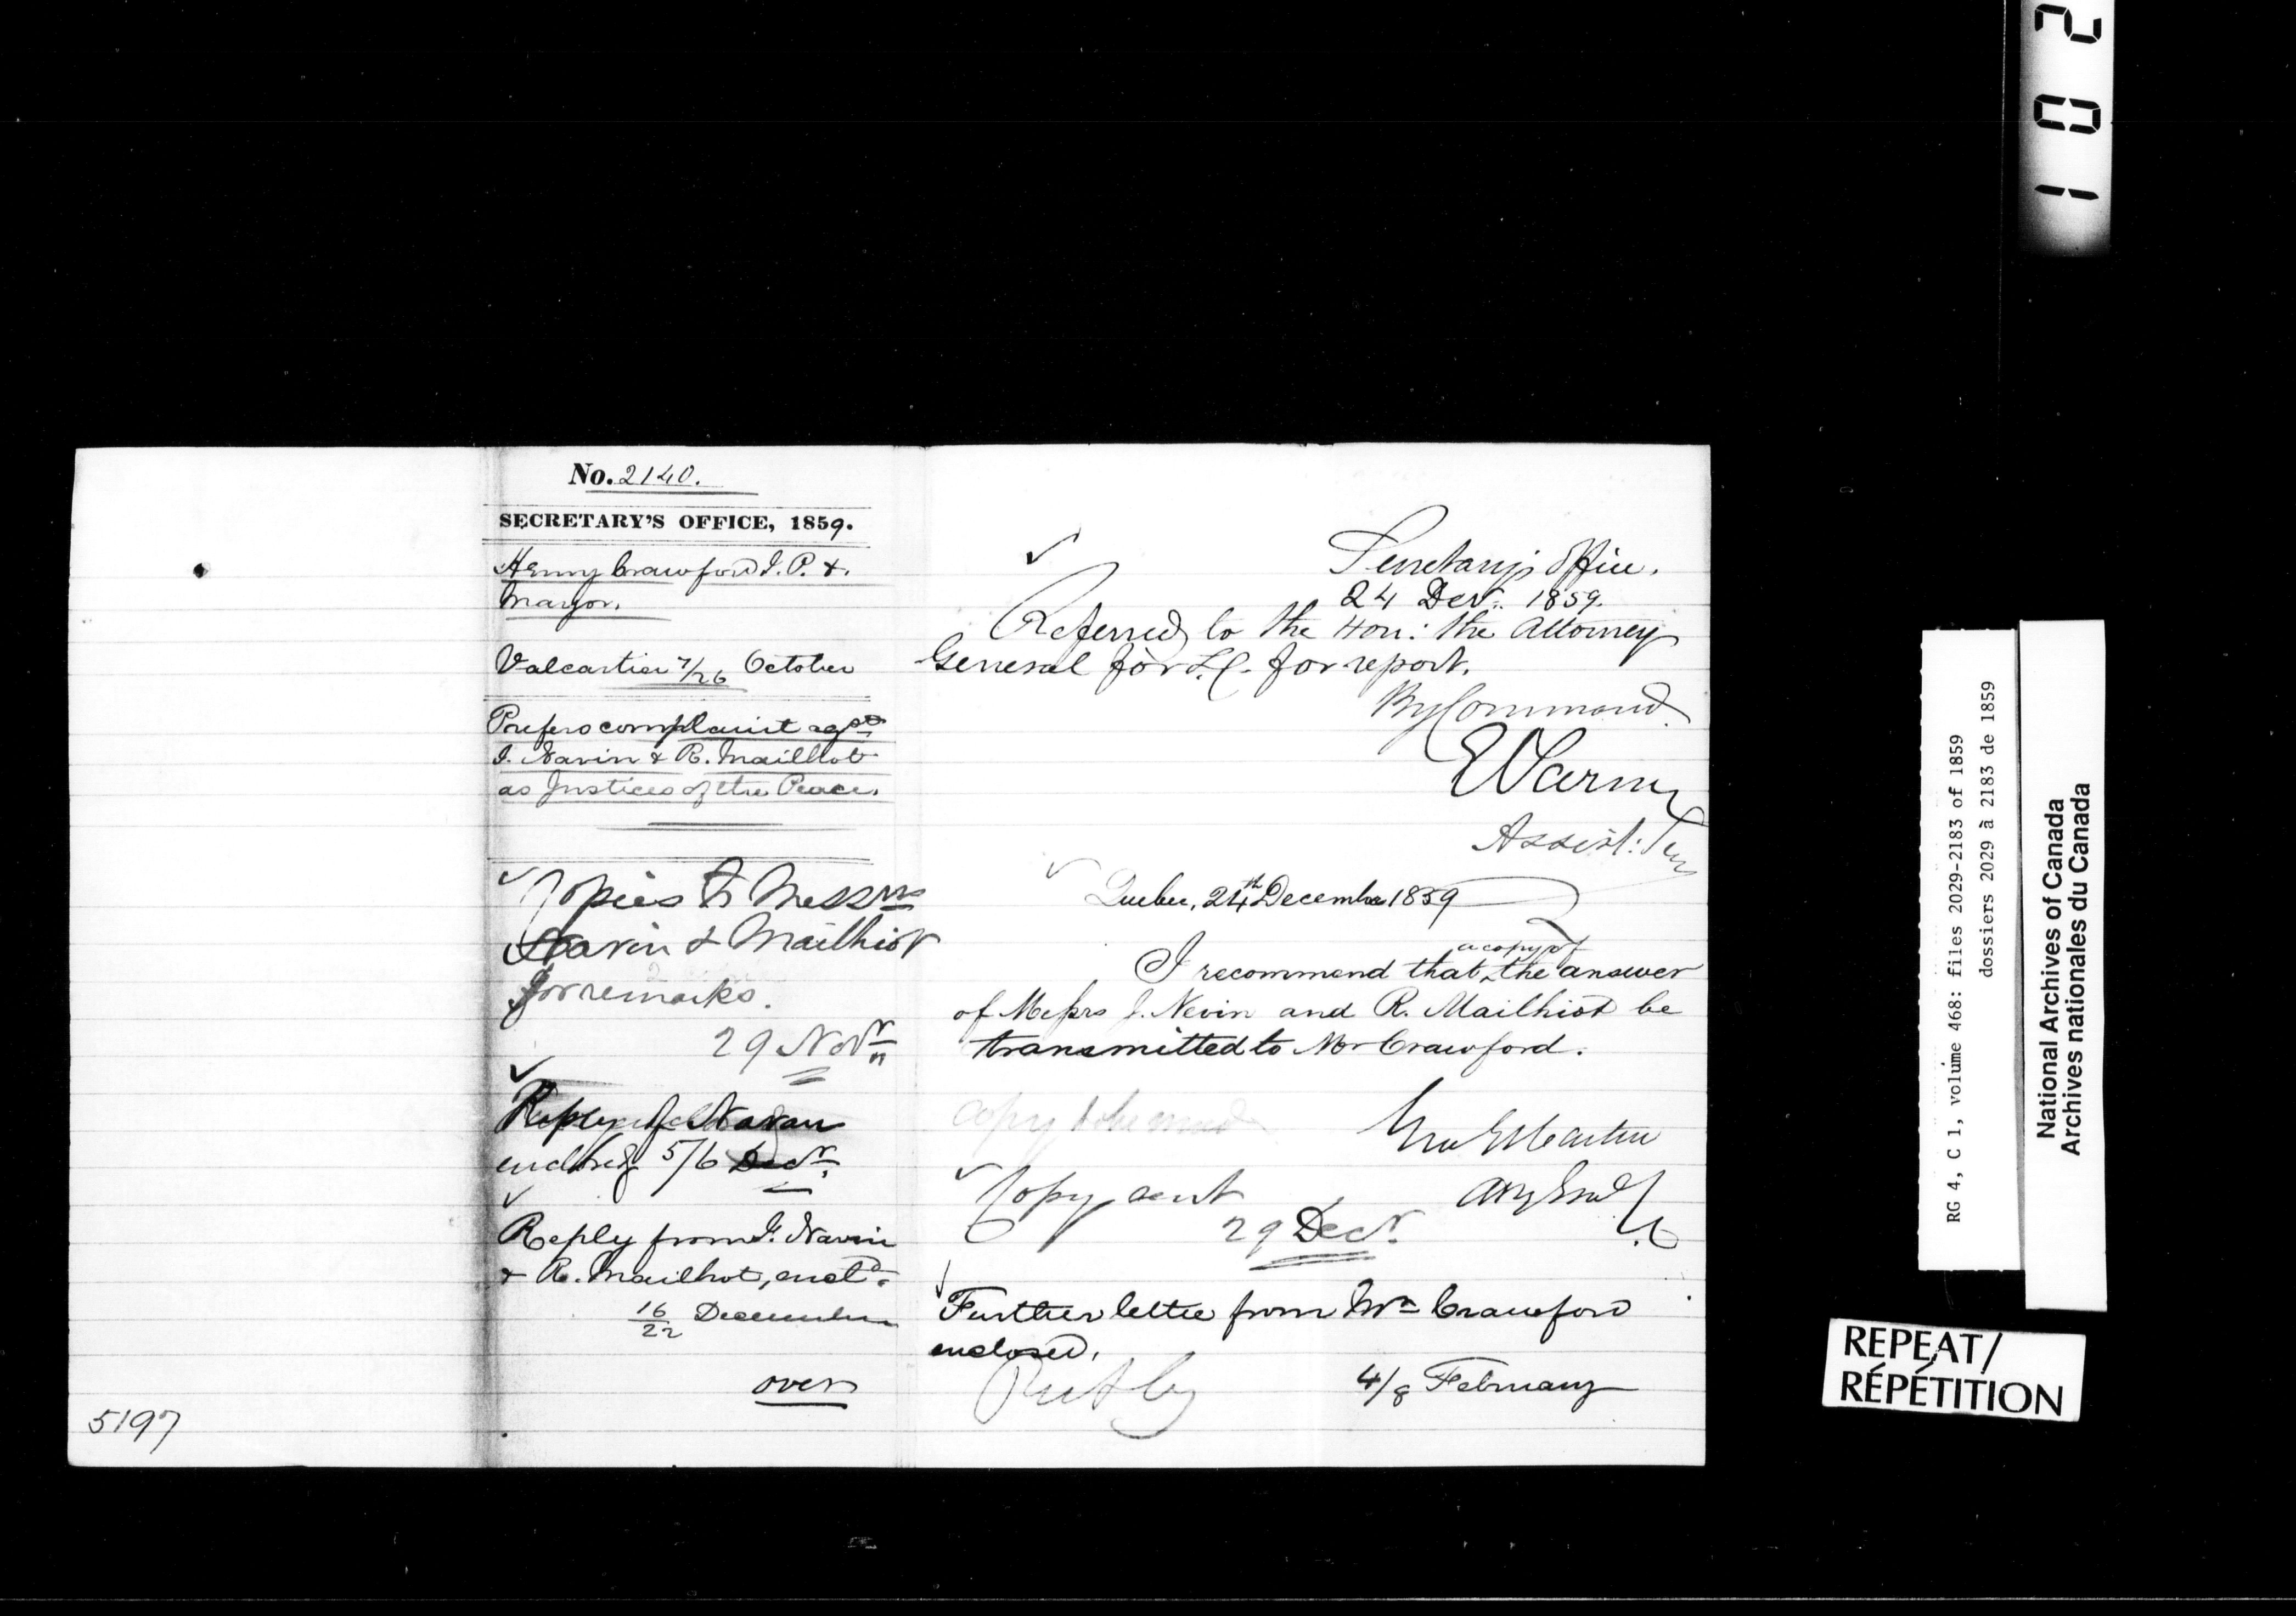 No. 2140.
SECRETARY'S OFFICE, 1859.
Henry Crawford J. P. &
Mayor.
Valcartier 7/26 October
Prefers complaint agst
I. Navin & R. Mailhot
as Justices of the Peace.
Copies to Messrs
Navin & Mailhiot
for remarks.
29 Novr
Reply of Navan
enclosed 5/6 Decr.
Reply from I. Navin
& R. Mailhot, encld.
16/22 December
over
5197
Secretary's Office.
24 Decr. 1859.
Referred to the Hon: the Attorney
General for L.C. for report.
By Command.
E Parent
Assist: Secy
Quebec, 24th December 1859
I recommend that a copy of the answer
of Messrs J. Nevin and R. Mailhiot be
transmitted to Mr Crawford.
Geo E Cartier
Atty Genl L.C.
Copy sent
29 Decr.
Further letter from Mr Crawford
enclosed.
4/8 February
102
RG 4, C 1, volume 468: files 2029-2183 of 1859
dossiers 2029 à 2183 de 1859
National Archives of Canada
Archives nationales du Canada
REPEAT/
RÉPÉTITION